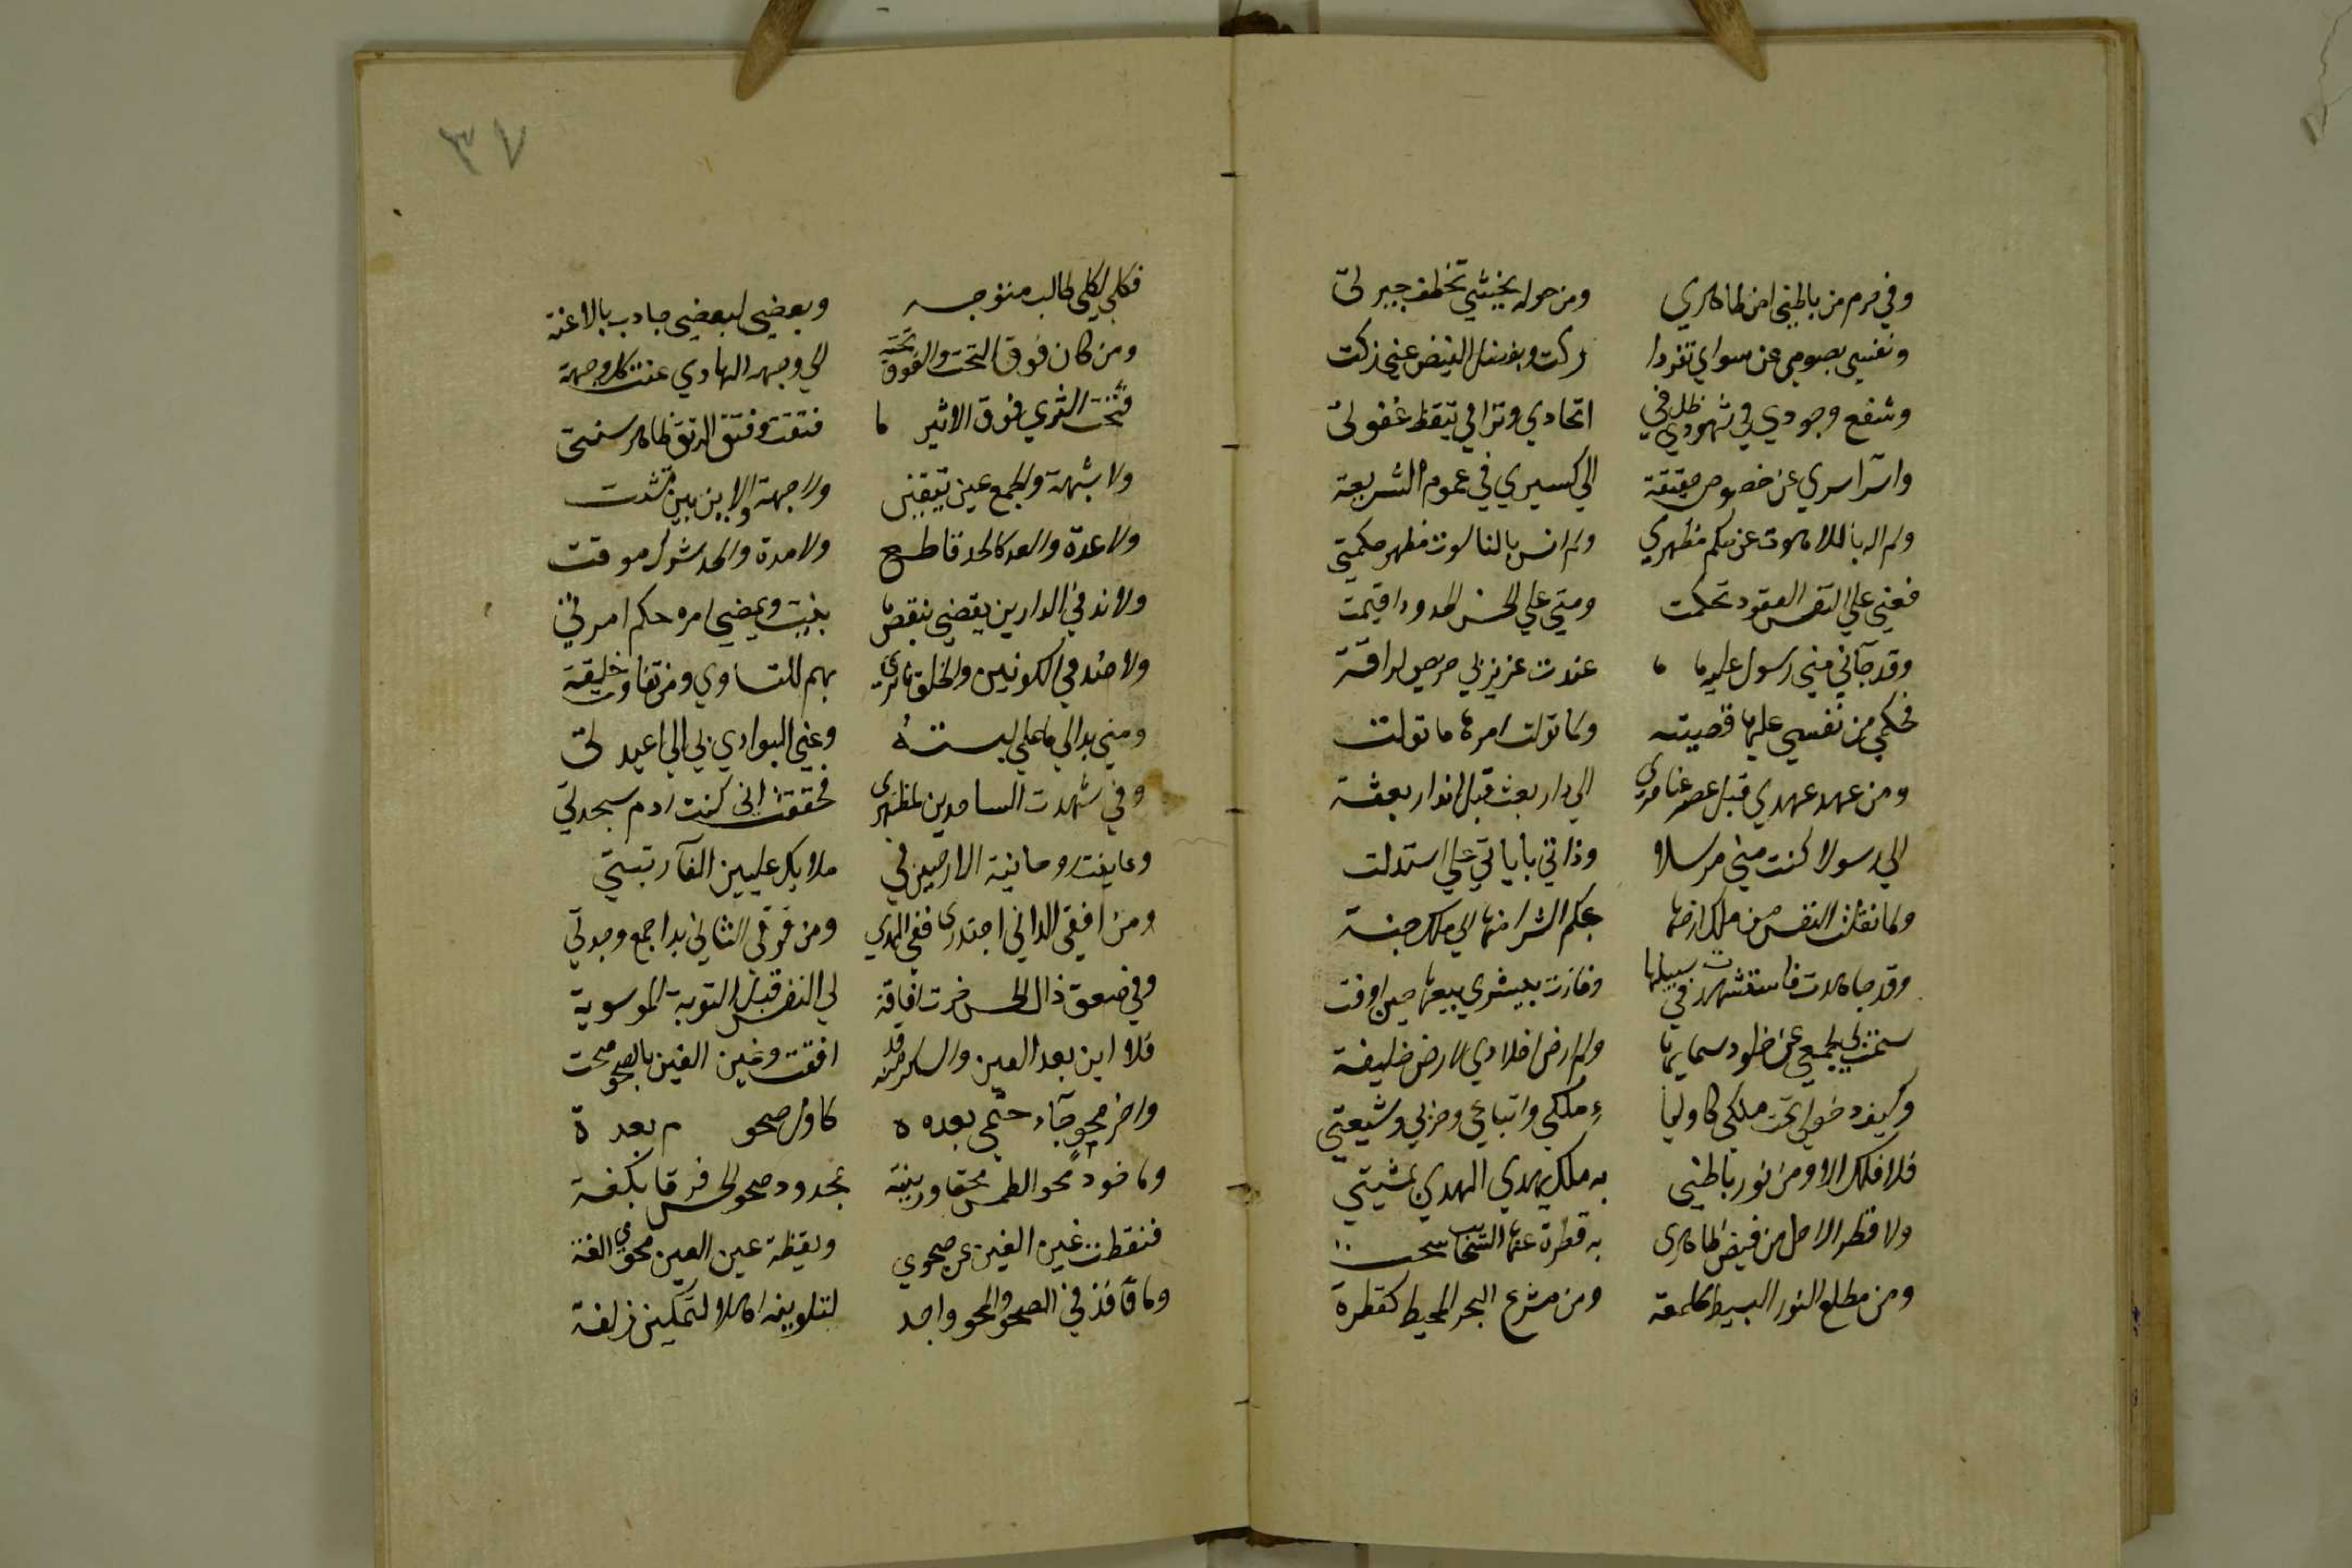 وفي حرم من باطني امن ظاهري ومن حوله يخشي تخطف جيرتي
ونفسي بصومي عن سواي تفردا زكت وبفضل الفيض عني زكت
وشفع وجودي في شهودي ظل في اتحادي وترا في تيقظ غفوتي
واسرا سري عن خصوص حقيقة الي كسيري في عموم الشريعة
ولم اله باللاهوت عن حكم مظهري ولم انس بالناسوت مظهر حكمتي
فعني علي النفس العقود تحكمت ومني علي الحس الحدود اقيمت
وقد جآني مني رسول عليه ما عندت عزيز بي حريص لرافة
فحكمي من نفسي عليها قضيته ولما تولت امرها ما تولت
ومن عهد عهدي قبل عصر عناصري الي دار بعث قبل انذار بعثة
الي رسولا كنت مني مرسلا وذاتي باياتي علي استدلت
ولما نقلت النفس من ملك ارضها بحكم الشرا منها الي ملك جنة
وقد جاهدت فاستشهدت في سبيلها وفازت ببشري بيعها حين اوفت
سمت بي لجمعي عن خلود سمايها ولم ارض اخلادي لارض خليفة
وكيف دخولي تحت ملكي كاوليا ء ملكي واتباعي وحزبي وشيعتي
فلا فلك الا ومن نور باطني به ملك يهدي الهدي بمشيتي
ولا قطر الا حل من فيض ظاهري به قطرة عنها السحايب سحت
ومن مطلع النور البسيط كلمعة ومن مشرع البحر المحيط كقطرة
٣٧
فكلي لكلي طالب متوجه وبعضي لبعضي جادب بالاعنة
ومن كان فوق التحت والفوق تحته الي وجهه الهادي عنت كل وجهة
فتحت الثري فوق الاثير لما فتقت وفتق الرتق ظاهر سنتي
ولا شبهة والجمع عين تيقني ولا جهة والاين بين تشتت
ولا عدة والعد كالحد قاطع ولا مدة والحد شرك موقت
ولا ند في الدارين يقضي بنقض ما بنيت ويمضي امره حكم امرتي
ولا ضد في الكونين والخلق ما تري بهم للتساوي من تفاوت خليقة
ومني بدا لي ما علي لبسته وعني البوادي بي الي اعيدت
وفي شهدت الساجدين لمظهري فحققت اني كنت ادم سجدتي
وعاينت روحانية الارضين في ملايك عليين الفآ رتبتي
ومن افقي الداني اجتدي رفقي الهدي ومن فرقي الثاني بدا جمع وحدتي
وفي صعق دك الحس خرت افاقة لي النفس قبل التوبة الموسوية
فلا اين بعد العين والسكر منه قد افقت وعين الغين بالصحو صحت
واخر محو جآء ختمي بعده كاول صحو م بعدة
وماخوذ محو الطمس محقا وزنته بمحدود صحو الحس فرقا بكفة
فنقطة غين الغين عن صحوي ويقظة عين العين محوي الغت
وما فاقد في الصحو والمحو واجد لتلوينه اهلا لتمكين زلفة